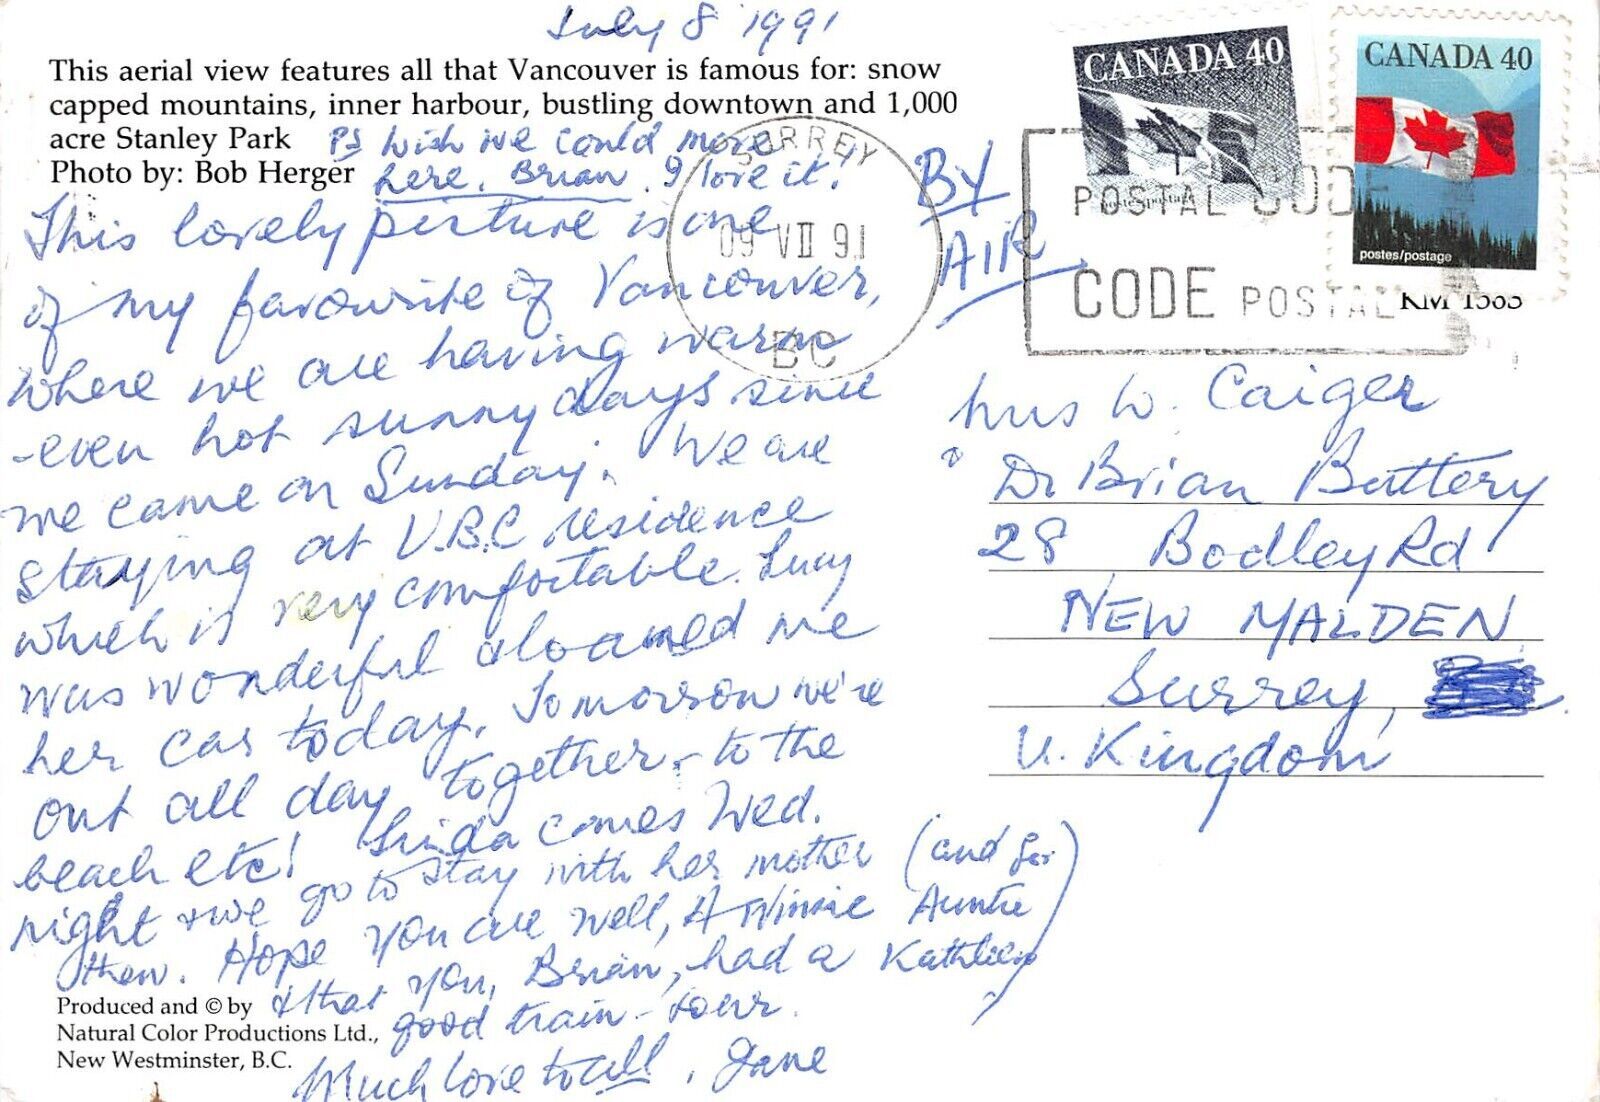 July 8 1991
This aerial view features all that Vancouver is famous for: snow
capped mountains, inner harbour, bustling downtown and 1,000
acre Stanley Park
Photo by: Bob Herger
PS Wish we could move
here, Brian. I love it!
This lovely picture is one
of my favourite of Vancouver,
where we are having warm
-even hot sunny days since
we came on Sunday. We are
staying at U.B.C residence
which is very comfortable. Lucy
was wonderful & loaned me
her car today. Tomorrow we're
out all day together - to the
beach etc! Linda comes Wed.
night & we go to stay with her mother
then. Hope you are well, A Winnie
(and for
Auntie
Kathleen)
& that you, Brian, had a
good train-tour.
Much love to all, Jane
Produced and © by
Natural Color Productions Ltd.,
New Westminster, B.C.
BY
AIR
SURREY
09 VII 91
BC
CANADA 40
postes/postage
CANADA 40
postes/postage
POSTAL CODE
CODE POSTAL
KM 1585
Mrs W. Caiger
Dr Brian Buttery
28 Bodley Rd
NEW MALDEN
Surrey,
U. Kingdom